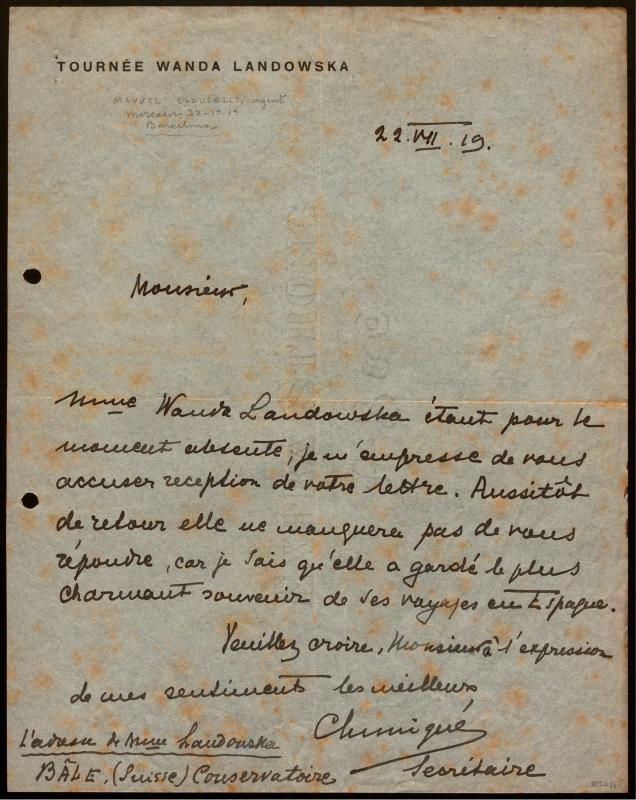 TOURNÉE WANDA LANDOWSKA
MANUEL CLAUSELLS, agent
Mercaders 28-1º 1ª
Barcelona
22.VII.19.
Monsieur,
Mme Wanda Landowska étant pour le
moment absente, je m'empresse de vous
accuser reception de votre lettre. Aussitôt
de retour elle ne manquera pas de vous
répondre, car je sais qu'elle a gardé le plus
charmant souvenir de ses voyages en Espagne.
Veuillez croire, Monsieur à l'expression
de mes sentiments les meilleurs
Secrétaire
L'adresse de Mme Landowska
BÂLE, (Suisse) Conservatoire